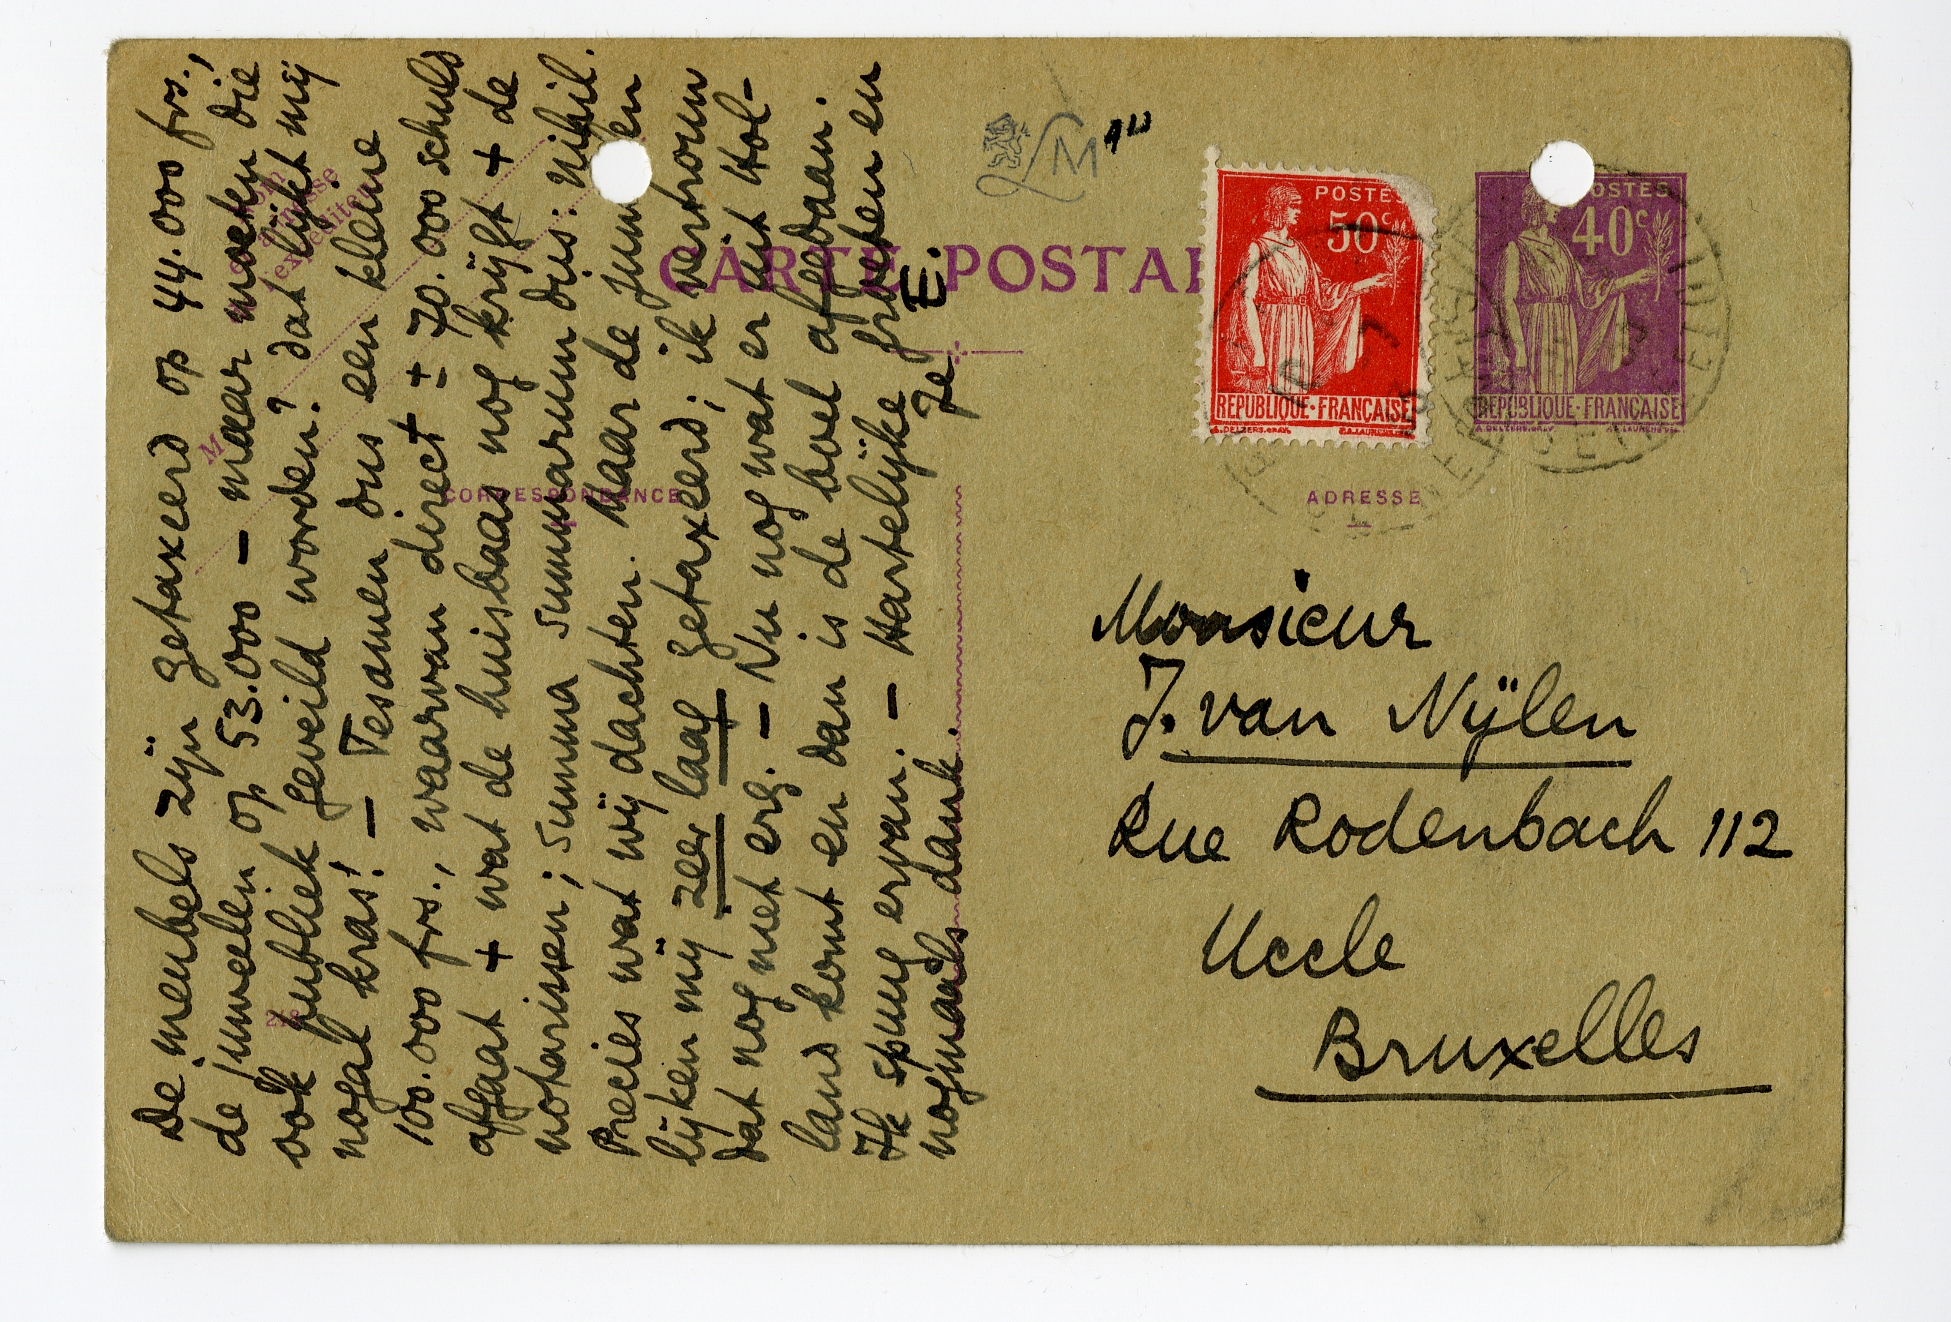 De meubels zijn getaxeerd op 44.000 frs.,
de juweelen op 53.000 — maar moeten die
ook publiek geveild worden? dat lijkt mij
nogal kras! — Tesamen dus een kleine
100.000 frs., waarvan direct ± 70.000 schuld
afgaat + wat de huisbaas nog krijgt + de
notarissen; summa summarum dus: nihil.
Precies wat wij dachten. Maar de juweelen
lijken mij zeer laag getaxeerd; ik vertrouw
dat nog niet erg. — Nu nog wat er uit Hol-
land komt en dan is de boel afgedaan.
Ik spuug ervan. — Hartelijke groeten en
nogmaals dank. Je E.
Nom
adresse
l'expéditeur
M
CARTE POSTAL
CORRESPONDANCE
ADRESSE
LM
POSTES
50c
REPUBLIQUE·FRANÇAISE
POSTES
40c
REPUBLIQUE·FRANÇAISE
Monsieur
J. van Nijlen
Rue Rodenbach 112
Uccle
Bruxelles